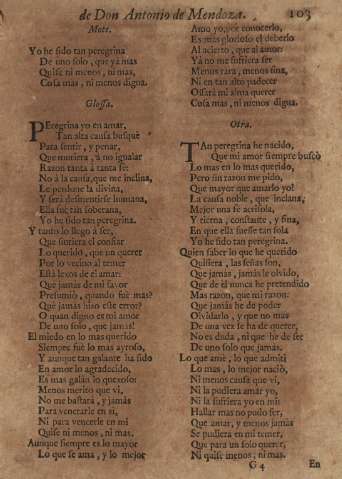 de Don Antonio de Mendoza. 103
Mote.
Yo he ſido tan peregrina
De uno ſolo, que ya mas
Quiſe ni menos, ni mas,
Coſa mas, ni menos digna.
Gloſſa.
PEregrina yo en amar,
Tan alta cauſa buſquè
Para ſentir, y penar,
Que muriera, à no igualar
Razon tanta à tanta fè:
No à la cauſa, que me inclina,
Le perdone la divina,
Y ſerà deſmentirſe humana,
Ella fue tan ſoberana,
Yo he ſido tan peregrina.
Y tanto lo llego à ſer,
Que ſintiera el confiar
Lo querido, que un querer
Por lo vecino al temer
Eſtà lexos de el amar:
Què jamàs de mi favor
Preſumiò, quando fuè mas?
Què jamàs hizo eſſe error?
O quan digno es mi amor
De uno ſolo, que jamàs!
El miedo en lo mas querido
Siempre fuè lo mas ayroſo,
Y aunque tan galante ha ſido
En amor lo agradecido,
Es mas galàn lo quexoſo:
Menos merito que vi,
No me baſtarà, y jamàs
Para vencerle en si,
Ni para vencerle en mi
Quiſe ni menos, ni mas.
Aunque ſiempre es lo mayor
Lo que ſe ama, y lo mejor
Amo yo, por conocerlo,
Es mas glorioſo el deberlo
Al acierto, que al amor:
Yà no me ſufriera ſer
Menos rara, menos fina,
Ni en tan alto padecer
Oſſarà mi alma querer
Coſa mas, ni menos digna.
Otra.
TAn peregrina he nacido,
Que mi amor ſiempre buſcò
Lo mas en lo mas querido,
Pero ſin razon me pido,
Que mayor que amarlo yo!
La cauſa noble, que inclina,
Mejor una fè acriſola,
Y tierna, conſtante, y fina,
En que ella fueſſe tan ſola
Yo he ſido tan peregrina.
Quien ſaber lo que he querido
Quiſiera, las ſeñas ſon,
Que jamàs, jamàs le olvido,
Que de èl nunca he pretendido
Mas razon, que mi razon:
Que jamàs he de poder
Olvidarlo, y que no mas
De una vez ſe ha de querer,
No es duda, ni que he de ſer
De uno ſolo, que jamàs.
Lo que amè, lo que admiti
Lo mas, lo mejor naciò,
Ni menos cauſa que vi,
Ni la pudiera amar yo,
Ni la ſufriera yo en mi:
Hallar mas no pudo ſer,
Que amar, y menos jamàs
Se pudiera en mi temer,
Que para un ſolo querer,
Ni quiſe menos, ni mas.
G 4 En